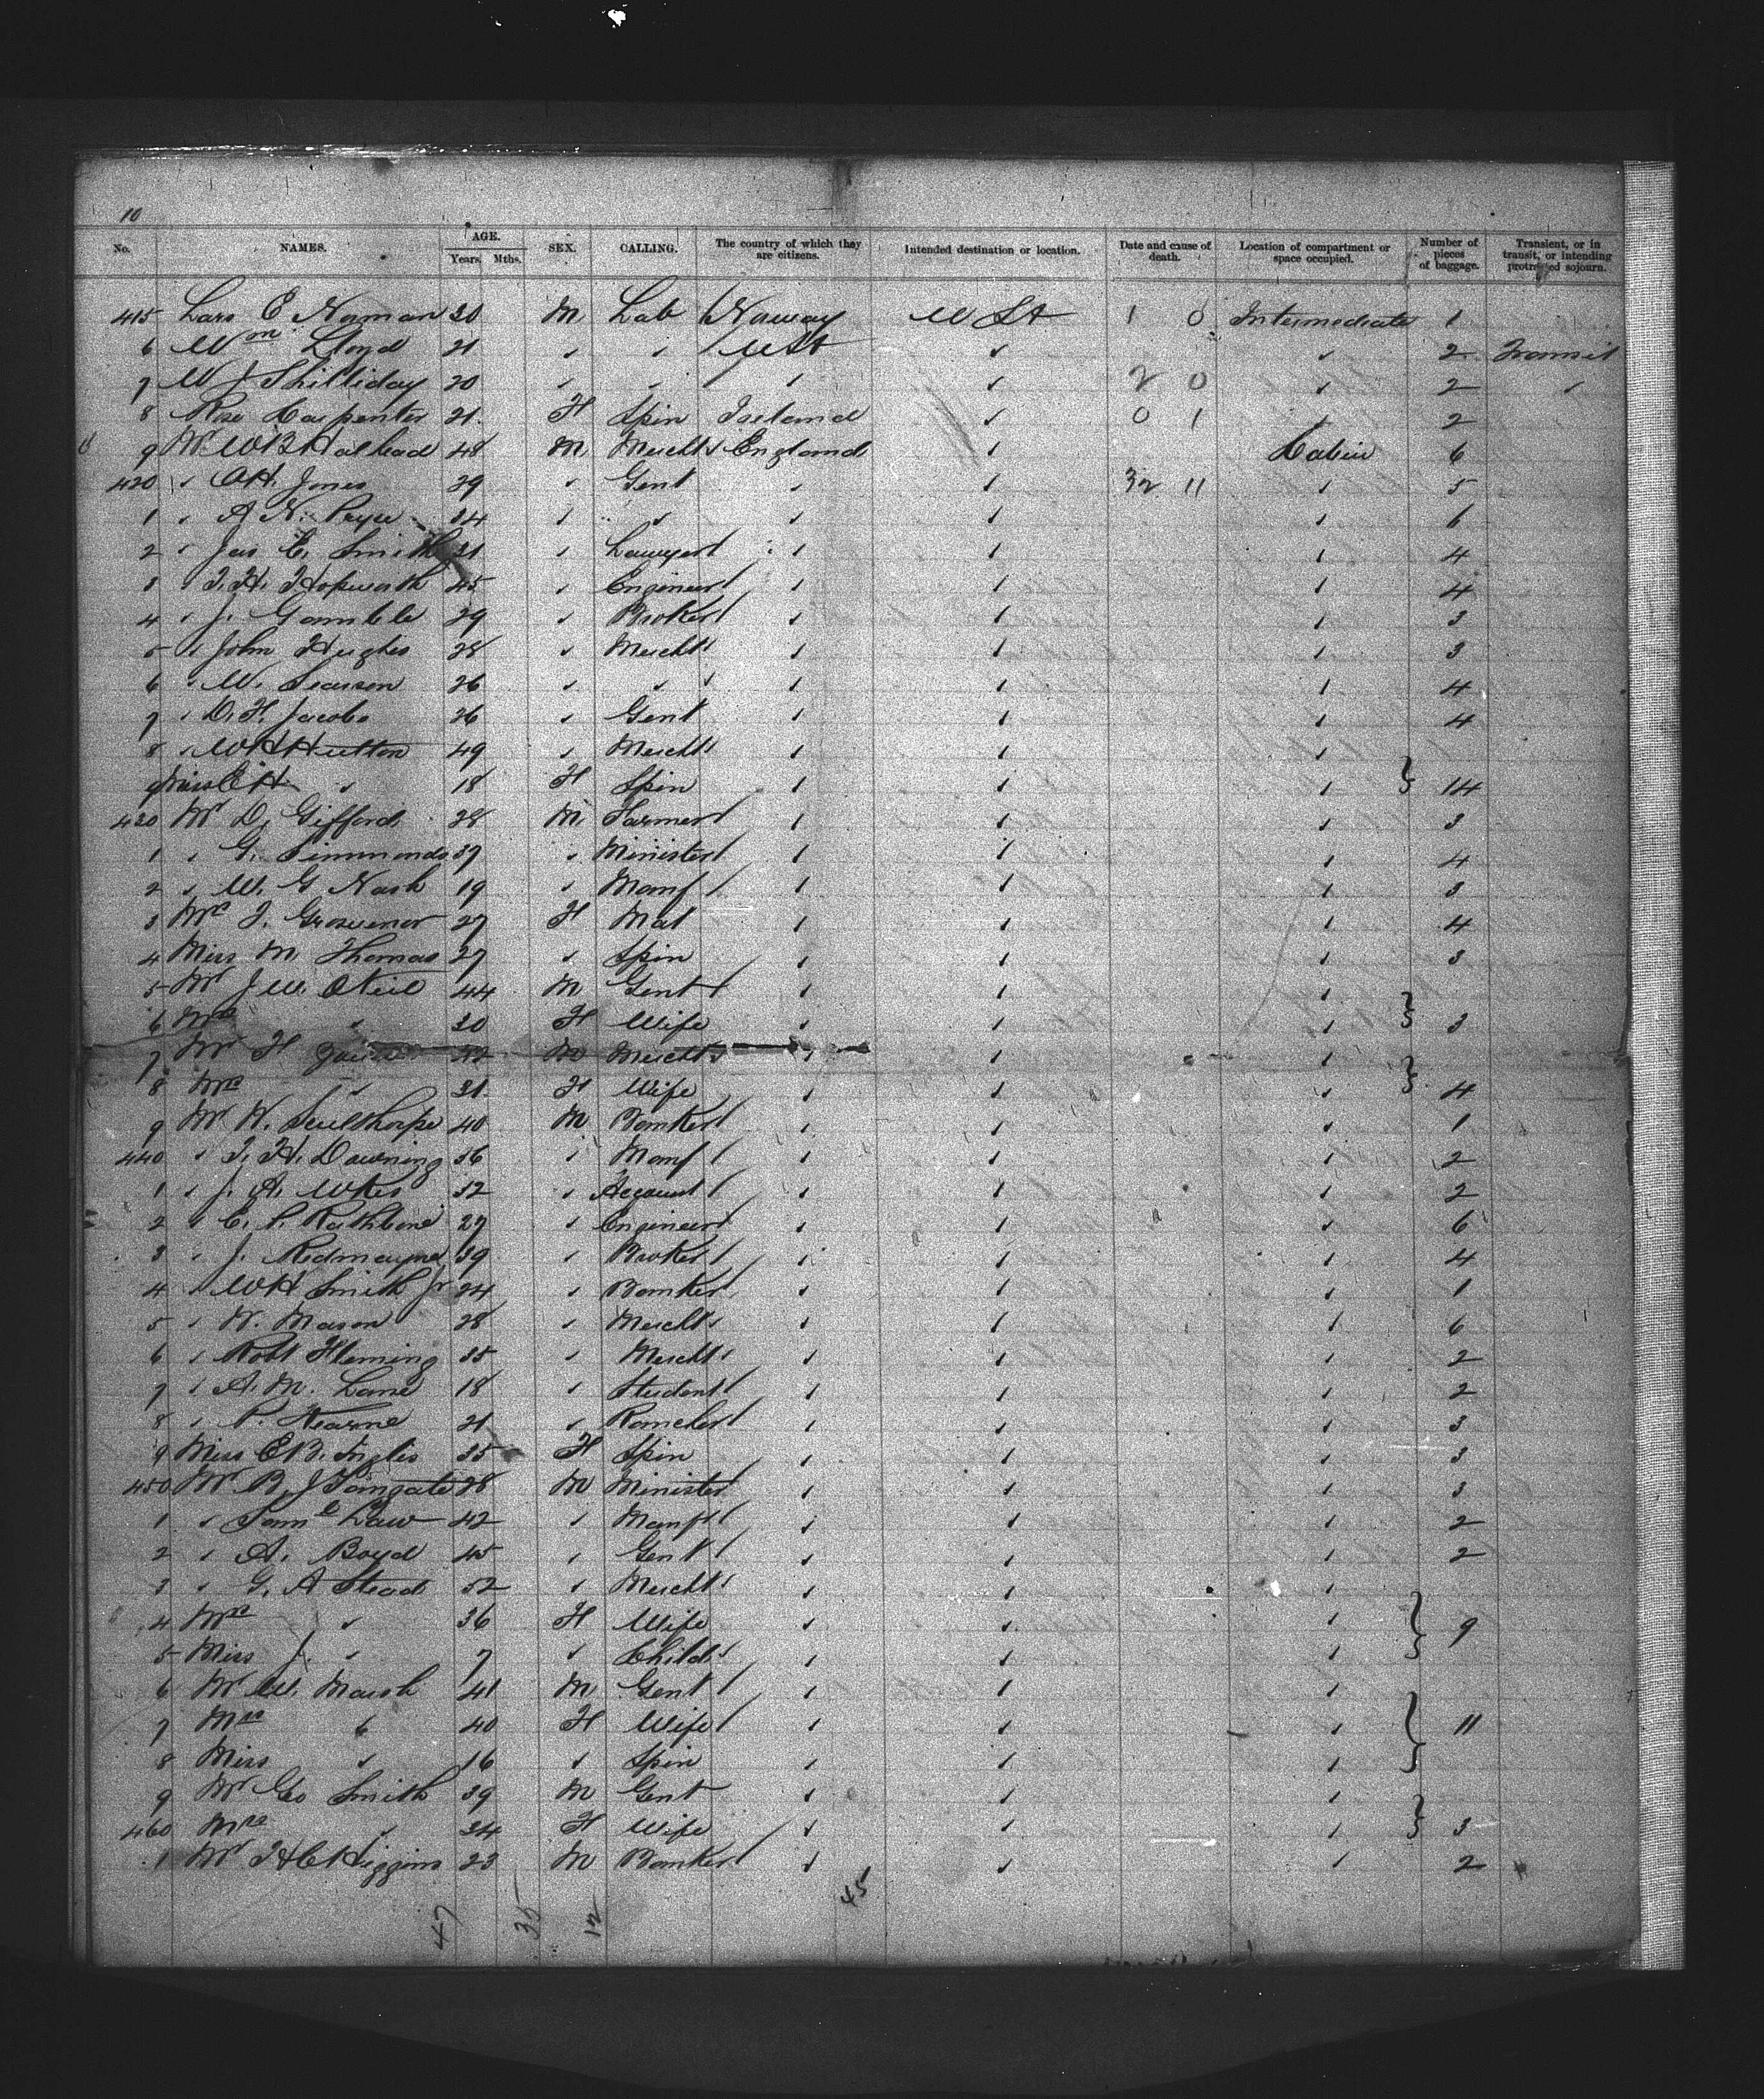 10
No. NAMES. AGE. Years. Mths. SEX. CALLING. The country of which they are citizens. Intended destination or location. Date and cause of death. Location of compartment or space occupied. Number of pieces of baggage. Transient, or in transit, or intending protracted sojourn.
415 Lars E Norman 30 M Lab Norway U St 1 0 Intermediate 1
6 Wm Lloyd 21 " " U St " " 2 Transit
7 W J Shilliday 20 " " " " 2 0 " 2 "
8 Rose Carpenter 21 F Spin Ireland " 0 1 2
9 Mr W B Halhead 48 M Mercht England " Cabin 6
420 " O H. Jones 29 " Gent " " 32 11 " 5
1 " A N. Pryce 34 " " " " " 6
2 " Jas C. Smith 31 " Lawyer " " " 4
3 " T. H. Hopworth 45 " Engineer " " " 4
4 " J. Gamble 29 " Broker " " " 3
5 " John Hughes 28 " Mercht " " " 3
6 " W. Pearson 26 " " " " " 4
7 " D. F. Jacobs 26 " Gent " " " 4
8 " W H Hutton 49 " Mercht " " "
9 Miss E H " 18 F Spin " " " } 14
430 Mr D. Gifford 28 M Farmer " " " 3
1 " G. Simmonds 37 " Minister " " " 4
2 " W. G Nash 19 " Manf " " " 3
3 Mrs J. Grosvenor 27 F Mat " " " 4
4 Miss M Thomas 27 " Spin " " " 3
5 Mr J W. O'Neil 44 M Gent " " "
6 Mrs " 30 F Wife " " " } 3
7 Mr H 42 M Mercht " " "
8 Mrs " 31 F Wife " " " } 4
9 Mr W. Sculthorpe 40 M Banker " " " 1
440 " T. H. Downing 36 " Manf " " " 2
1 " J. A. Wkes 32 " Account " " " 2
2 " C. P. Rathbone 27 " Engineer " " " 6
3 " J. Redmayne 39 " Broker " " " 4
4 " W H Smith Jr 24 " Banker " " " 1
5 " W. Mason 28 " Mercht " " " 6
6 " Robt Fleming 35 " Mercht " " " 2
7 " A. M. Lane 18 " Student " " " 2
8 " P. Hearne 21 " Rancher " " " 3
9 Miss E B. Inglis 35 F Spin " " " 3
450 Mr B. J Tomgate 28 M Minister " " " 3
1 " Saml Law 42 " Manf " " " 2
2 " A. Boyd 45 " Gent " " " 2
3 " G. A Stead 52 " Mercht " " "
4 Mrs " 36 F Wife " " " } 9
5 Miss J. " 7 " Child " " "
6 Mr W. Marsh 41 M Gent " " "
7 Mrs " 40 F Wife " " " } 11
8 Miss " 16 " Spin " " "
9 Mr Geo Smith 39 M Gent " " "
460 Mrs " 34 F Wife " " " } 3
1 Mr H C Higgins 23 M Banker " " " 2
47 35 12 45